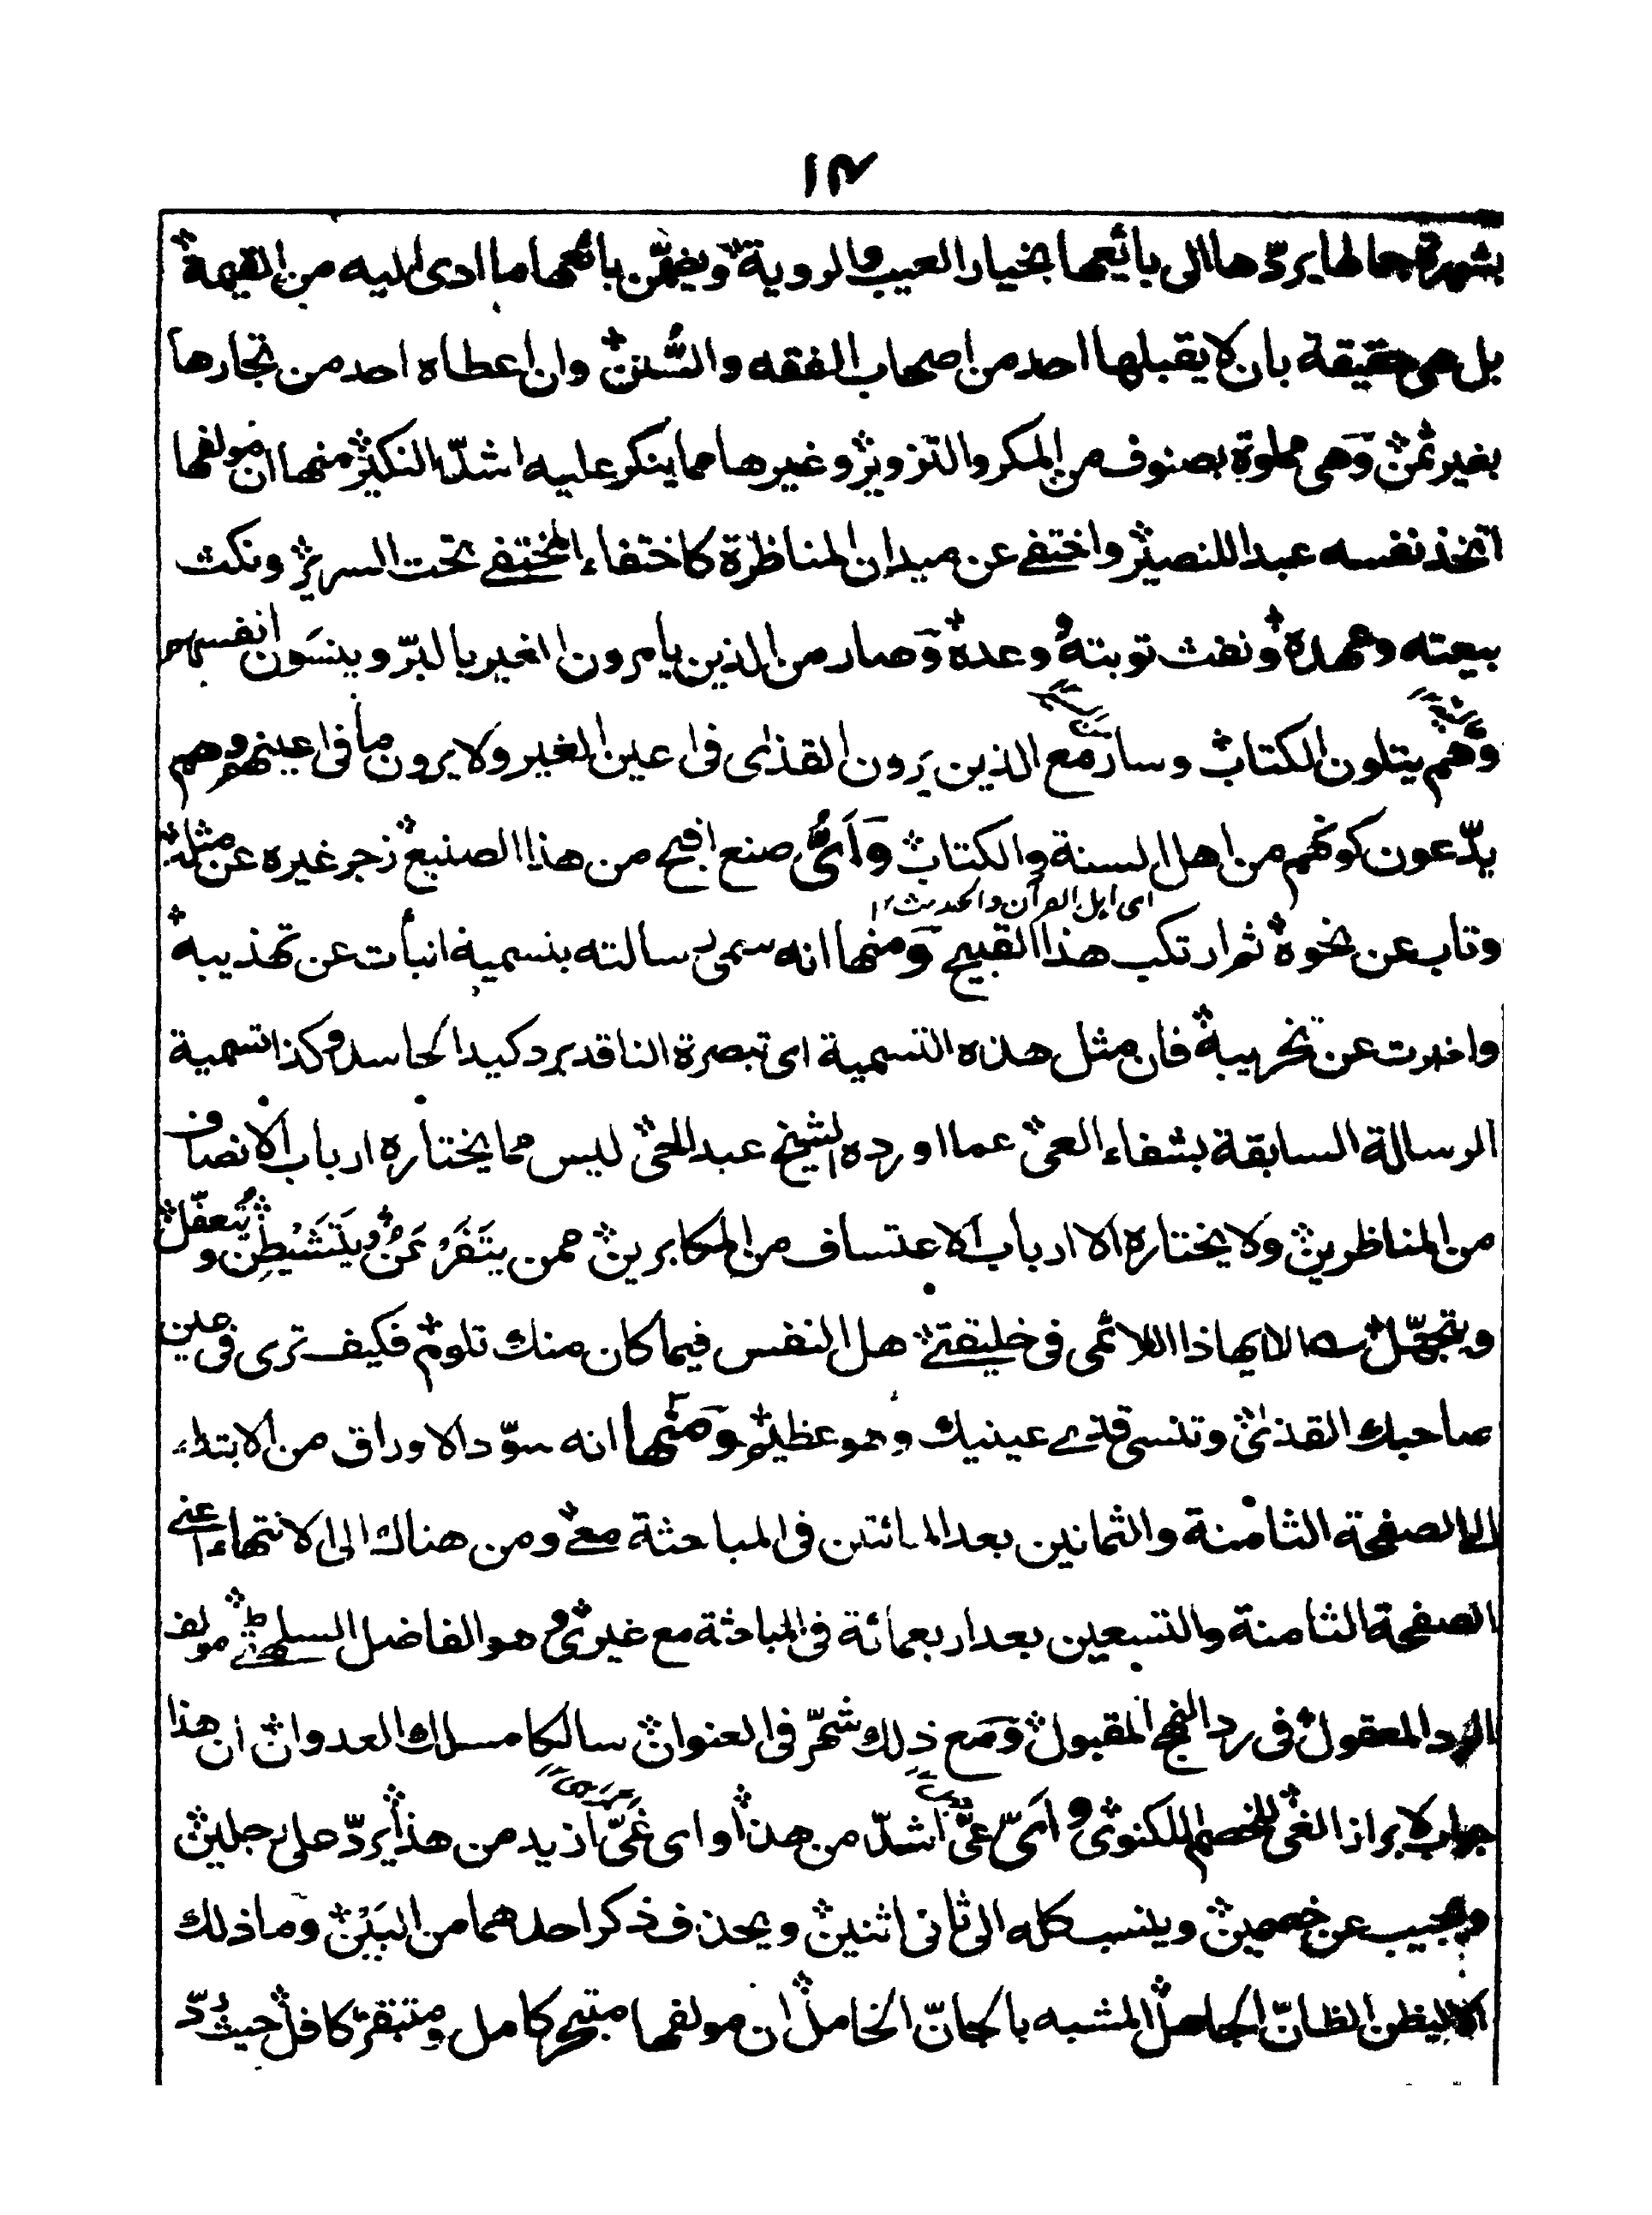 ١٣
بشهرة جمالها يردّها الى بائعها بخيار العيب والروية ويضمّن بائعها ما ادى اليه من القيمة
بل هى حقيقة بان لا يقبلها احد من اصحاب الفقه والسُّنن وان اعطاه احد من تجارها
بغير ثمن وَهى مملوة بصنوف من المكر والتزوير وغيرها مما ينكر عليه اشدّ النكير منها ان مولفها
اتخذ نفسه عبدا للنصير واختفے عن ميدان المناظرة كاختفاء المختفے تحت السرير ونكث
بيعته وعهده ونفث توبته ووعده وَصار من الذين يامرون الغير بالبرّ وينسَون انفسهم
وهُم يتلون الكتاب وسار مع الذين يَرون القذى فى اعين الغير ولا يرون ما فى اعينهم وهم
يدّعون كونهم من اهل السنة والكتاب وَاَىُّ صنع اقبح من هذا الصنيع زجر غيره عن مثله
اى اہل القرآن والحديث ١٢
وتاب عن نحوه ثم ارتكب هذا القبيح وَمنها انه سمى رسالته بتسمية انبأت عن تهذيبه
واخبرت عن تخريبه فان مثل هذه التسمية اى تبصرة الناقد برد كيد الحاسد وكذا تسمية
الرسالة السابقة بشفاء العى عما اورده الشيخ عبد الحى ليس مما يختاره ارباب الانصاف
من المناظرين ولا يختاره الا ارباب الاعتساف من المكابرين ممن يتَفَرْعَنُ ويَتَشَيْطن ويُتعفّل
ويتجهّل ؎ الا يهاذا اللائمى فى خليقتے هل النفس فيما كان منك تلوم فكيف ترى فى عين
صاحبك القذى وتنسى قذے عينيك وهو عظيم وَمنها انه سوّد الاوراق من الابتداء
الى الصفحة الثامنة والثمانين بعد المائتين فى المباحثة معے ومن هناك الى الانتهاء اعنے
الصفحة الثامنة والتسعين بعد اربعمائة فى المباحثة مع غيرى وهو الفاضل السلهٹے مولف
الرد المعقول فى رد النهج المقبول وَمَع ذلك شمّر فى العنوان سالكا مسلك العدوان ان هذا
جواب لابراز الغى للخصم اللكنوى وَاَىّ عىّ اشدّ من هذا او اى غىّ ازيد من هذا يردّ على رجلين
ويجيب عن خصمين وينسب كله الى ثانى اثنين ويحذف ذكر احدهما من البَيْن وما ذلك
الا ليظن الظانّ الجاهل المشبه بالجانّ الخامل ان مولفها متبحر كامل ومتبقر كافل حيث رُدّ